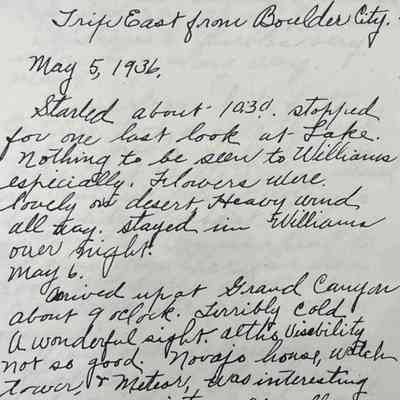 Trip East from Boulder City.
May 5, 1936.
Started about 10:30. stopped
for one last look at Lake.
Nothing to be seen to Williams
especially. Flowers were
lovely on desert Heavy wind
all day. stayed in Williams
over night.
May 6.
Arrived up at Grand Canyon
about 9 o'clock. Terribly cold
A wonderful sight. altho visebility
not so good. Novajo house, watch
tower, & Meteor, was interesting